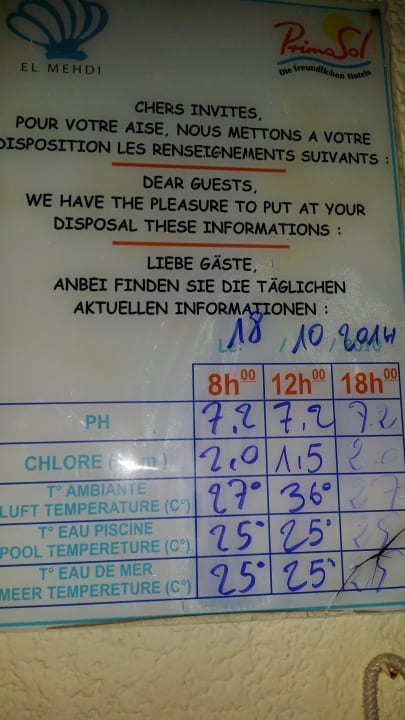 EL MEHDI
PrimaSol
Die freundlichen Hotels
CHERS INVITES,
POUR VOTRE AISE, NOUS METTONS A VOTRE
DISPOSITION LES RENSEIGNEMENTS SUIVANTS :
DEAR GUESTS,
WE HAVE THE PLEASURE TO PUT AT YOUR
DISPOSAL THESE INFORMATIONS :
LIEBE GÄSTE,
ANBEI FINDEN SIE DIE TÄGLICHEN
AKTUELLEN INFORMATIONEN :
Le 18 / 10 / 2014
8h00 12h00 18h00
PH 7,2 7,2 7.2
CHLORE 2,0 1,5 2.0
T° AMBIANTE
LUFT TEMPERATURE (C°) 27° 36° 27
T° EAU PISCINE
POOL TEMPERETURE (C°) 25° 25° 25
T° EAU DE MER
MEER TEMPERETURE (C°) 25° 25° 25